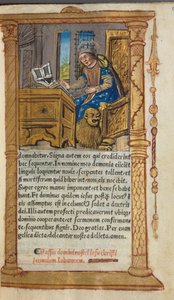 demnabitur. Signa autem eos qui crediderint
hec sequentur. In nomine meo demonia eiicient
linguis loquentur nouis. serpentes tollent. et
si mortiferum quid biberint: non eis nocebit.
Super egros manus imponent: et bene habe
bunt. Et dominus quidem iesus postq̃ locut⁹
eis assumptus est in celum: et sedet a dextris
dei. Illi autem profecti predicauerunt vbiq̃
domino cooperante: et sermonem confirman
te: sequentibus signis. Deo gratias. Per euan
gelica dicta. deleantur nostra delicta. amen.
Passio domini nostri Iesu christi
secundum Iohannem.